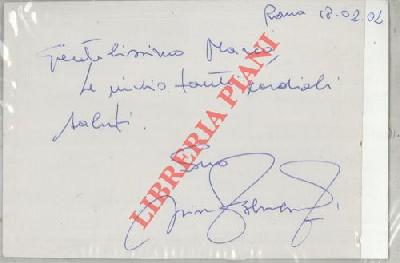 Roma 18.02.02
Gentilissimo
Le invio tanti cordiali
saluti.
Suo
LIBRERIA PIANI